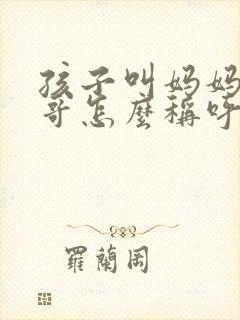 孩子叫妈妈
哥怎麼稱呼
羅蘭岡